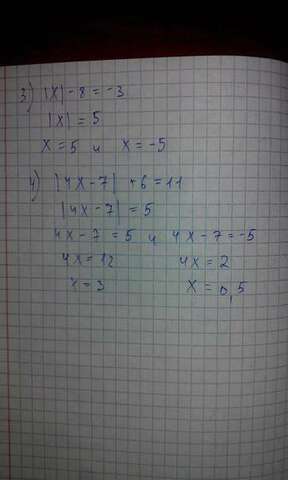 3) |x| - 8 = -3
|x| = 5
x = 5 и x = -5
4) |4x - 7| + 6 = 11
|4x - 7| = 5
4x - 7 = 5 и 4x - 7 = -5
4x = 12 4x = 2
x = 3 x = 0,5